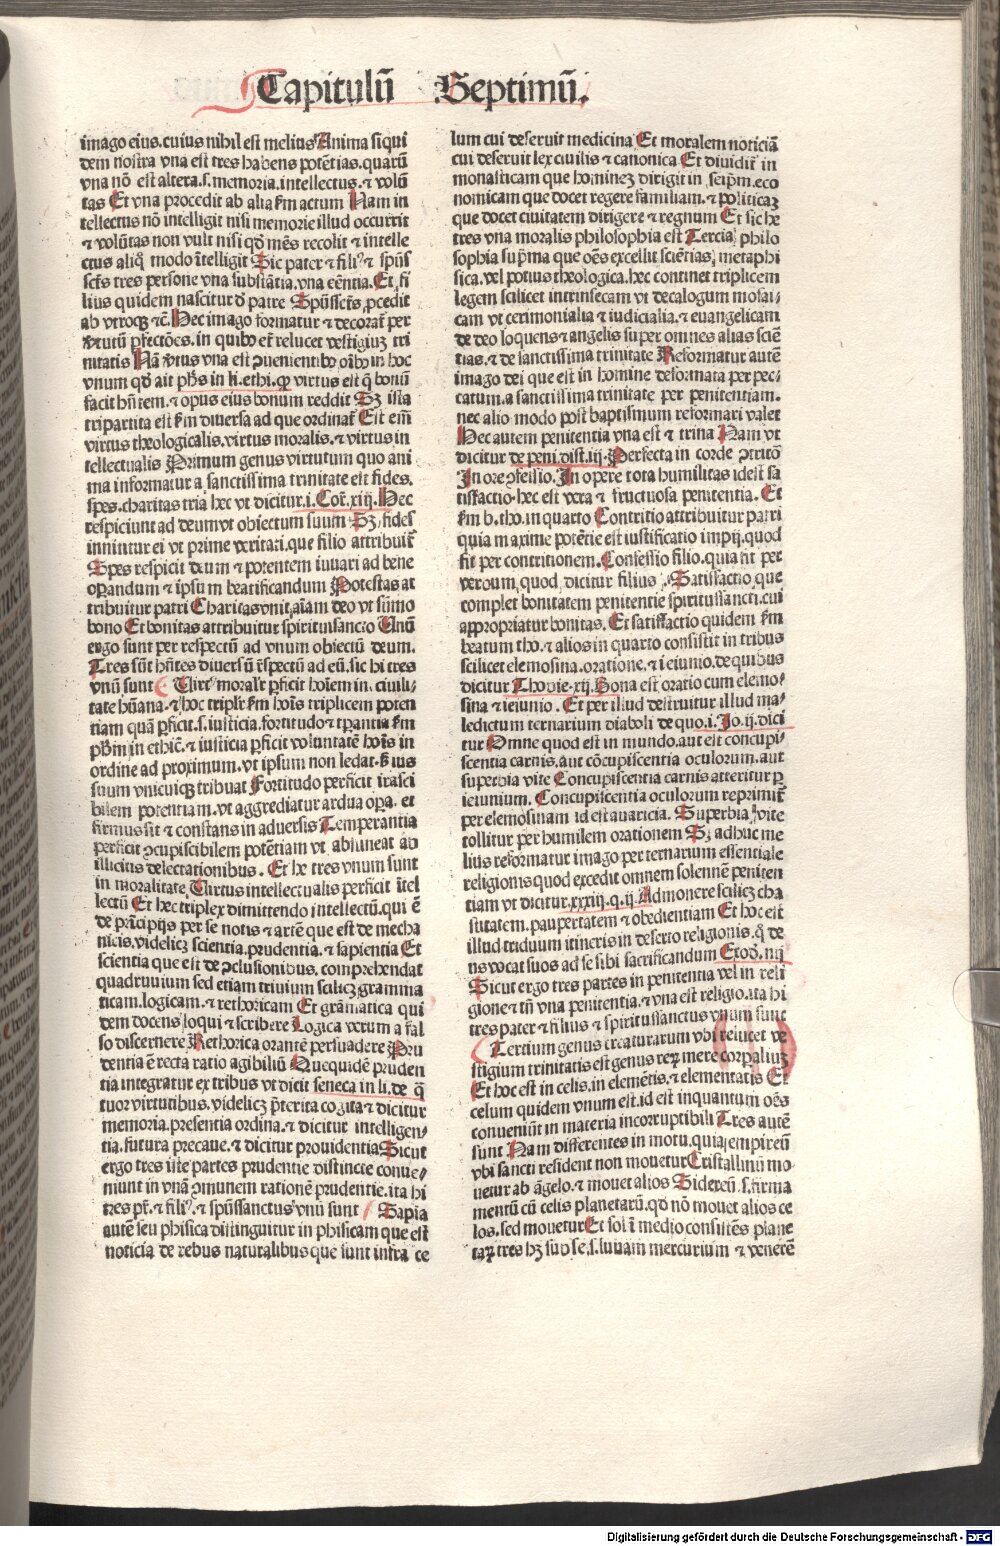 Capitulū Septimū.
imago eius. cuius nihil est melius Anima siqui
dem nostra vna est tres habens potētias. quarū
vna nō est altera. s. memoria. intellectus. ⁊ volū
tas Et vna procedit ab alia ẜm actum Nam in
tellectus nō intelligit nisi memorie illud occurrit
⁊ volūtas non vult nisi qd̓ mēs recolit ⁊ intelle
ctus aliq̄ modo ītelligit Sic pater ⁊ filiꝰ ⁊ spūs
sct̄s tres persone vna substātia. vna eēntia. Et fi
lius quidem nascitur d̓ patre Spūssct̄s ꝓcedit
ab vtroqꝫ ⁊c̄. Hec imago formatur ⁊ decorat̄ per
v̓tutū ꝑfectōes. in quibꝰ et̄ relucet vestigiuꝫ tri
nitatis Nā v̓tus vna est ꝯuenientibꝰ oībꝰ in hoc
vnum qd̓ ait ph̄s in li. ethi. ꝙ virtus est q̄ bonū
facit hn̄tem. ⁊ opus eius bonum reddit Sꝫ ista
tripartita est ẜm diuersa ad que ordinat̄ Est em̄
virtus theologicalis. virtus moralis. ⁊ virtus in
tellectualis Primum genus virtutum quo ani
ma informatur a sanctissima trinitate est fides.
spes. charitas tria hec vt dicitur. i. Cor̄. xiij. Hec
respiciunt ad deum vt obiectum suum Sꝫ fides
innititur ei vt prime veritati. que filio attribuit̄
Spes respicit deum ⁊ potentem iuuari ad bene
oꝑandum ⁊ ipsum beatificandum Potestas at
tribuitur patri Charitas vnit aīam deo vt sūmo
bono Et bonitas attribuitur spirituisancto Unū
ergo sunt per respectū ad vnum obiectū deum.
Tres sūt hn̄tes diuersū r̄spectū ad eū. sic hi tres
vnū sunt Uirtꝰ moral̓ ꝑficit hoīem in ciuili-
tate hūana. ⁊ hoc tripl̓r ẜm hoīs triplicem poten
tiam quā ꝑficit. s. iusticia. fortitudo ⁊ tꝑantia ẜm
ph̄m in ethic̄. ⁊ iusticia ꝑficit voluntatē hoīs in
ordine ad proximum. vt ipsum non ledat. ⁊ ius
suum vnicuiqꝫ tribuat Fortitudo perficit irasci
bilem potentiam. vt aggrediatur ardua oꝑa. et
firmus sit ⁊ constans in aduersis Temperantia
perficit ꝯcupiscibilem potētiam vt abstineat ab
illicitis delectationibus. Et he tres vnum sunt
in moralitate Uirtus intellectualis perficit ītel
lectū Et hec triplex dimittendo intellectū. qui ē
de prīcipijs per se notis ⁊ artē que est de mecha
nicis. videlicꝫ scientia. prudentia. ⁊ sapientia Et
scientia que est de ꝯclusionibus. comprehendat
quadruuium sed etiam triuium scilicꝫ gramma
ticam. logicam. ⁊ rethoricam Et grāmatica qui
dem docens loqui ⁊ scribere Logica verum a fal
so discernere Rethorica orantē persuadere Pru
dentia ē recta ratio agibiliū Quequidē pruden
tia integratur ex tribus vt dicit seneca in li. de q̄
tuor virtutibus. videlicꝫ p̄terita cogita ⁊ dicitur
memoria. presentia ordina. ⁊ dicitur intelligen-
tia. futura precaue. ⁊ dicitur prouidentia Sicut
ergo tres iste partes prudentie distincte conue-
niunt in vnā ꝯmunem rationē prudentie. ita hi
tres pr̄. ⁊ filiꝰ. ⁊ spūssanctus vnū sunt Sapia
autē seu phisica distinguitur in phisicam que est
noticia de rebus naturalibus que sunt infra ce
lum cui deseruit medicina Et moralem noticiā
cui deseruit lex ciuilis ⁊ canonica Et diuidit̄ in
monasticam que hominez dirigit in seip̄m. eco
nomicam que docet regere familiam. ⁊ politicaꝫ
que docet ciuitatem dirigere ⁊ regnum Et sic he
tres vna moralis philosophia est Tercia philo
sophia sup̄ma que oēs excellit sciētias, metaphi
sica. vel potius theologica. hec continet triplicem
legem scilicet intrinsecam vt decalogum mosai-
cam vt cerimonialia ⁊ iudicialia. ⁊ euangelicam
de deo loquens ⁊ angelis super omnes alias sciē
tias. ⁊ de sanctissima trinitate Reformatur autē
imago dei que est in homine deformata per pec-
catum. a sanctissima trinitate per penitentiam.
nec alio modo post baptismum reformari valet
Hec autem penitentia vna est ⁊ trina Nam vt
dicitur de peni. dist. iij. Perfecta in corde ꝯtritō
In ore ꝯfessio. In opere tota humilitas id est sa
tisfactio. hec est vera ⁊ fructuosa penitentia. Et
ẜm b. tho. in quarto Contritio attribuitur patri
quia maxime potētie est iustificatio impij. quod
fit per contritionem. Confessio filio. quia fit per
verbum, quod dicitur filius. Satisfactio que
complet bonitatem penitentie spiritussancti. cui
appropriatur bonitas. Et satisfactio quidem ẜm
beatum tho. ⁊ alios in quarto consistit in tribus
scilicet elemosina. oratione. ⁊ ieiunio. de quibus
dicitur Thobie. xij. Bona est oratio cum elemo-
sina ⁊ ieiunio. Et per illud destruitur illud ma-
ledictum ternarium diaboli de quo. i. Jo. ij. dici
tur Omne quod est in mundo. aut est concupi-
scentia carnis. aut cōcupiscentia oculorum. aut
superbia vite Concupiscentia carnis atteritur ꝑ
ieiunium. Concupiscentia oculorum reprimit̄
per elemosinam id est auaricia. Superbia vite
tollitur per humilem orationem Sꝫ adhuc me
lius reformatur imago per ternarium essentiale
religionis quod excedit omnem solennē peniten
tiam vt dicitur. xxxiij. q. ij. Admonere scilicꝫ cha
stitatem. paupertatem ⁊ obedientiam Et hoc est
illud triduum itineris in deserto religionis. q̄ de
us vocat suos ad se sibi sacrificandum Exod̓. iij
Sicut ergo tres partes in penitentia vel in reli
gione ⁊ tn̄ vna penitentia. ⁊ vna est religio. ita hi
tres pater ⁊ filius ⁊ spiritussanctus vnum sunt
Tertium genus creaturarum vbi relucet ve
stigium trinitatis est genus reꝝ mere corpaliuꝫ
Et hoc est in celis. in elemētis. ⁊ elementatis Et
celum quidem vnum est. id est inquantum oēs
conueniūt in materia incorruptibili Tres autē
sunt Nam differentes in motu. quia empireū
vbi sancti resident non mouetur Cristallinū mo-
uetur ab āgelo. ⁊ mouet alios Sidereū. s. firma
mentū cū celis planetarū. qd̓ nō mouet alios ce
los. sed mouetur Et sol ī medio consistēs plane
taꝝ tres hꝫ sub se. s. lunam mercurium ⁊ venerē
Digitalisierung gefördert durch die Deutsche Forschungsgemeinschaft - DFG